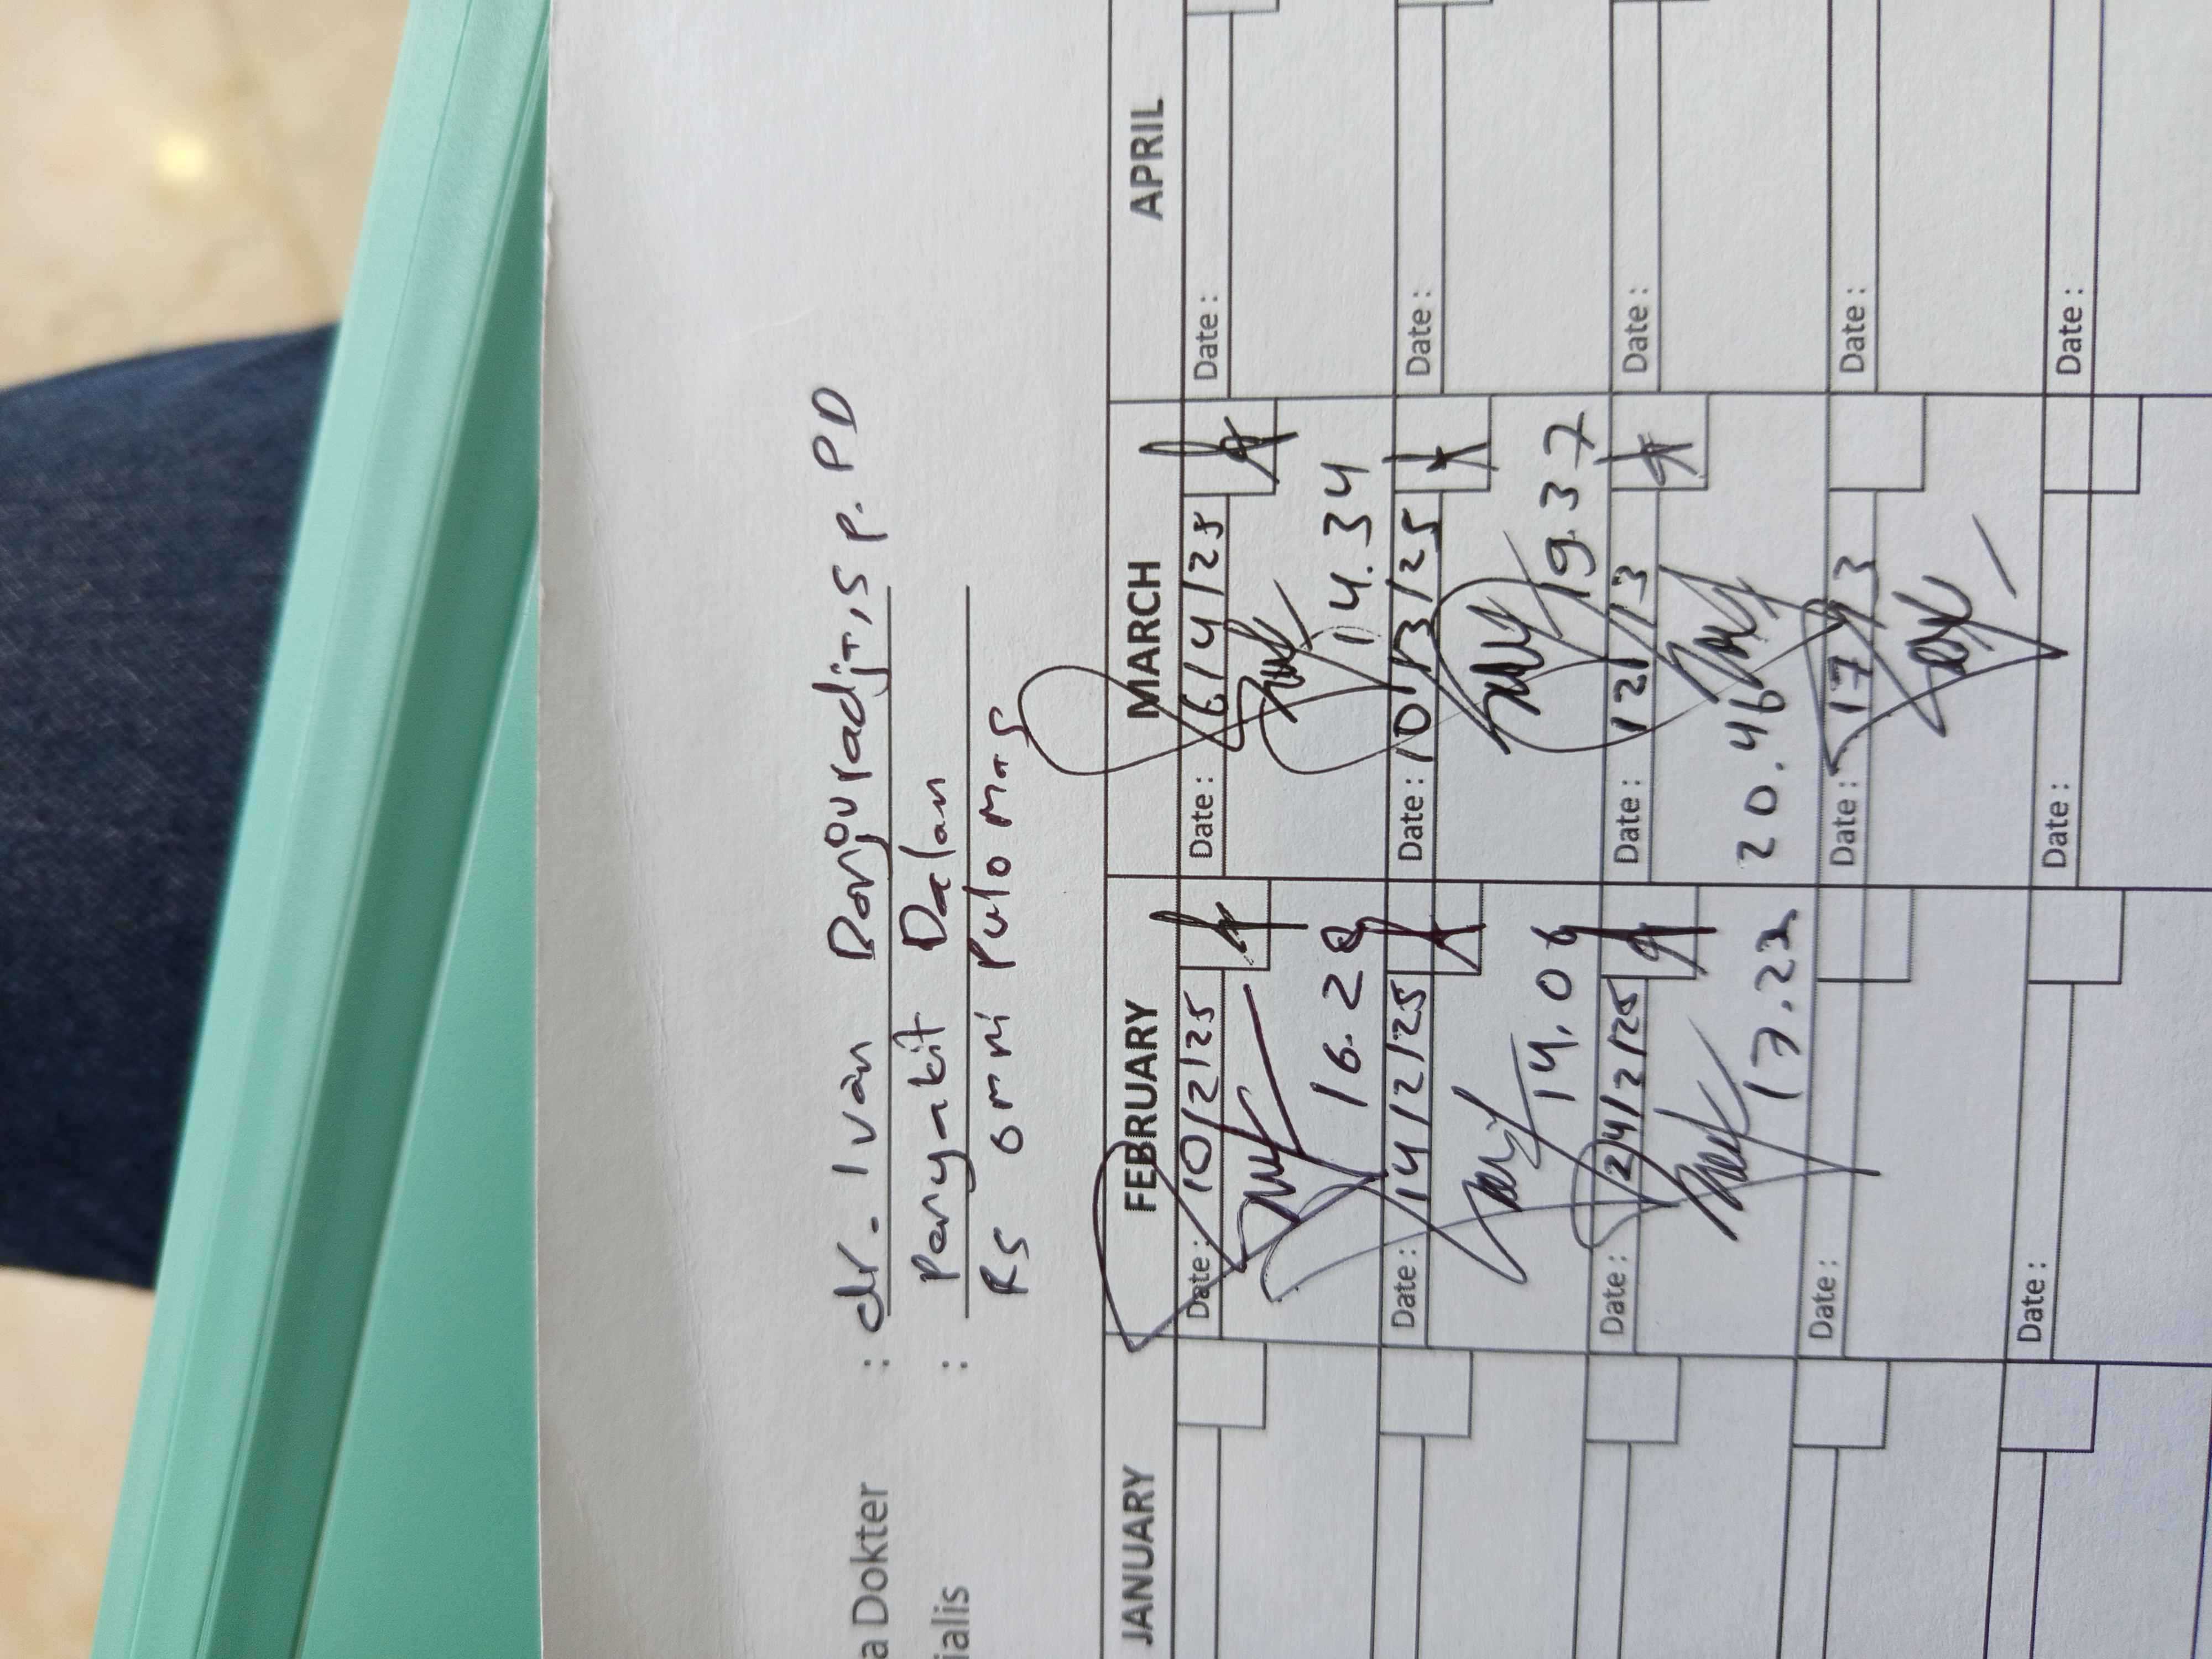 a Dokter : dr. Ivan Panjuradjt, S P. PD
ialis : Penyakit Dalam
RS Omni Pulo Mas
JANUARY FEBRUARY MARCH APRIL
Date: 10/2/25 Date: 6/4/25 Date:
16.28 14.34
Date: 14/2/25 Date: 10/3/25 Date:
14.06 19.37
Date: 24/2/25 Date: 12/3 Date:
17.22 20.46
Date: Date: 17/3 Date:
Date: Date: Date: